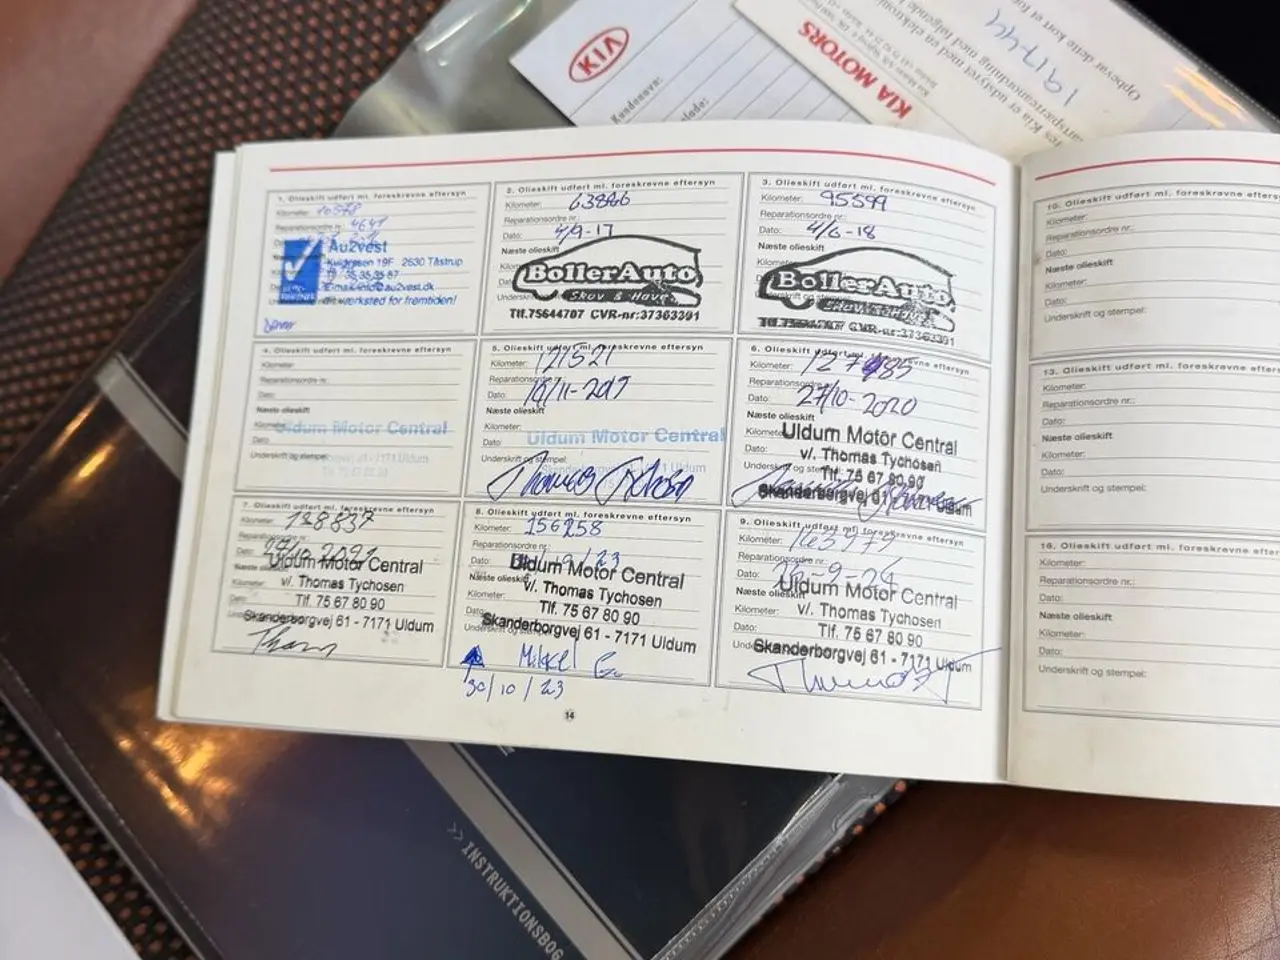 KIA
Kundenavn:
KIA MOTORS
Opbevar dette kort et
19744
1. Olieskift udført ml. foreskrevne eftersyn
Kilometer: 10578
Reparationsordre nr.: 4641
Au2vest
Kuldyssen 19F 2630 Tåstrup
Tlf. 35 35 35 87
E-mail: info@au2vest.dk
dit værksted for fremtiden!
2. Olieskift udført ml. foreskrevne eftersyn
Kilometer: 63886
Reparationsordre nr.:
Dato: 4/9-17
Næste olieskift
BollerAuto
Skov & Have
Tlf.75644707 CVR-nr:37363391
3. Olieskift udført ml. foreskrevne eftersyn
Kilometer: 95599
Reparationsordre nr.:
Dato: 4/6-18
Næste olieskift
BollerAuto
Skov & Have
Tlf.75644707 CVR-nr:37363391
4. Olieskift udført ml. foreskrevne eftersyn
Kilometer:
Reparationsordre nr.:
Dato:
Næste olieskift
Kilometer:
Uldum Motor Central
Dato:
Underskrift og stempel:
5. Olieskift udført ml. foreskrevne eftersyn
Kilometer: 121521
Reparationsordre
Dato: 19/11-2019
Næste olieskift
Kilometer:
Uldum Motor Central
Dato:
Underskrift og stempel:
Thomas Tychosen
6. Olieskift udført ml. foreskrevne eftersyn
Kilometer: 127985
Reparationsordre
Dato: 27/10-2020
Næste olieskift
Uldum Motor Central
v/. Thomas Tychosen
Tlf. 75 67 80 90
Skanderborgvej 61 - 7171 Uldum
7. Olieskift udført ml. foreskrevne eftersyn
Kilometer: 138837
Reparationsordre
Dato:
Uldum Motor Central
v/. Thomas Tychosen
Tlf. 75 67 80 90
Skanderborgvej 61 - 7171 Uldum
8. Olieskift udført ml. foreskrevne eftersyn
Kilometer: 156258
Reparationsordre nr.:
Dato:
Næste olieskift
Uldum Motor Central
v/. Thomas Tychosen
Tlf. 75 67 80 90
Skanderborgvej 61 - 7171 Uldum
Mikkel
30/10/23
9. Olieskift udført ml. foreskrevne eftersyn
Kilometer: 163979
Reparationsordre
Dato:
Næste olieskift
Uldum Motor Central
v/. Thomas Tychosen
Tlf. 75 67 80 90
Skanderborgvej 61 - 7171 Uldum
14
10. Olieskift udført ml. foreskrevne
Kilometer:
Reparationsordre nr.:
Dato:
Næste olieskift
Kilometer:
Dato:
Underskrift og stempel:
13. Olieskift udført ml. foreskrevne
Kilometer:
Reparationsordre nr.:
Dato:
Næste olieskift
Kilometer:
Dato:
Underskrift og stempel:
16. Olieskift udført ml. foreskrevne
Kilometer:
Reparationsordre nr.:
Dato:
Næste olieskift
Kilometer:
Dato:
Underskrift og stempel:
>> INSTRUKTIONSBOG